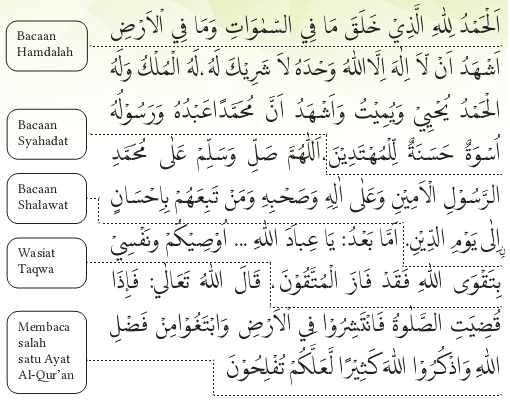 Bacaan
Hamdalah
Bacaan
Syahadat
Bacaan
Shalawat
Wasiat
Taqwa
Membaca
salah
satu Ayat
Al-Qur'an
اَلْحَمْدُ لِلّٰهِ الَّذِيْ خَلَقَ مَا فِي السَّمٰوَاتِ وَمَا فِي الْاَرْضِ
اَشْهَدُ اَنْ لَّا اِلٰهَ اِلَّااللهُ وَحْدَهُ لاَ شَرِيْكَ لَهُ ،لَهُ الْمُلْكُ وَلَهُ
الْحَمْدُ يُحْيِيْ وَيُمِيْتُ وَاَشْهَدُ اَنَّ مُحَمَّدًاعَبْدُهُ وَرَسُوْلُهُ
اُسْوَةٌ حَسَنَةٌ لِّلْمُهْتَدِيْنَ،اَللّٰهُمَّ صَلِّ وَسَلِّمْ عَلٰى مُحَمَّدِ
الرَّسُوْلِ الْاَمِيْنِ وَعَلٰى اٰلِهِ وَصَحْبِهِ وَمَنْ تَبِعَهُمْ بِاِحْسَانٍ
اِلٰى يَوْمِ الدِّيْنِ. اَمَّا بَعْدُ: يَا عِبَادَ اللهِ ... اُوْصِيْكُمْ وَنَفْسِيْ
بِتَقْوَى اللهِ فَقَدْ فَازَ الْمُتَّقُوْنَ. قَالَ اللهُ تَعَالٰي: فَاِذَا
قُضِيَتِ الصَّلٰوةُ فَانْتَشِرُوْا فِي الْاَرْضِ وَابْتَغُوْامِنْ فَضْلِ
اللهِ وَاذْكُرُوْا اللهَ كَثِيْرًا لَّعَلَّكُمْ تُفْلِحُوْنَ